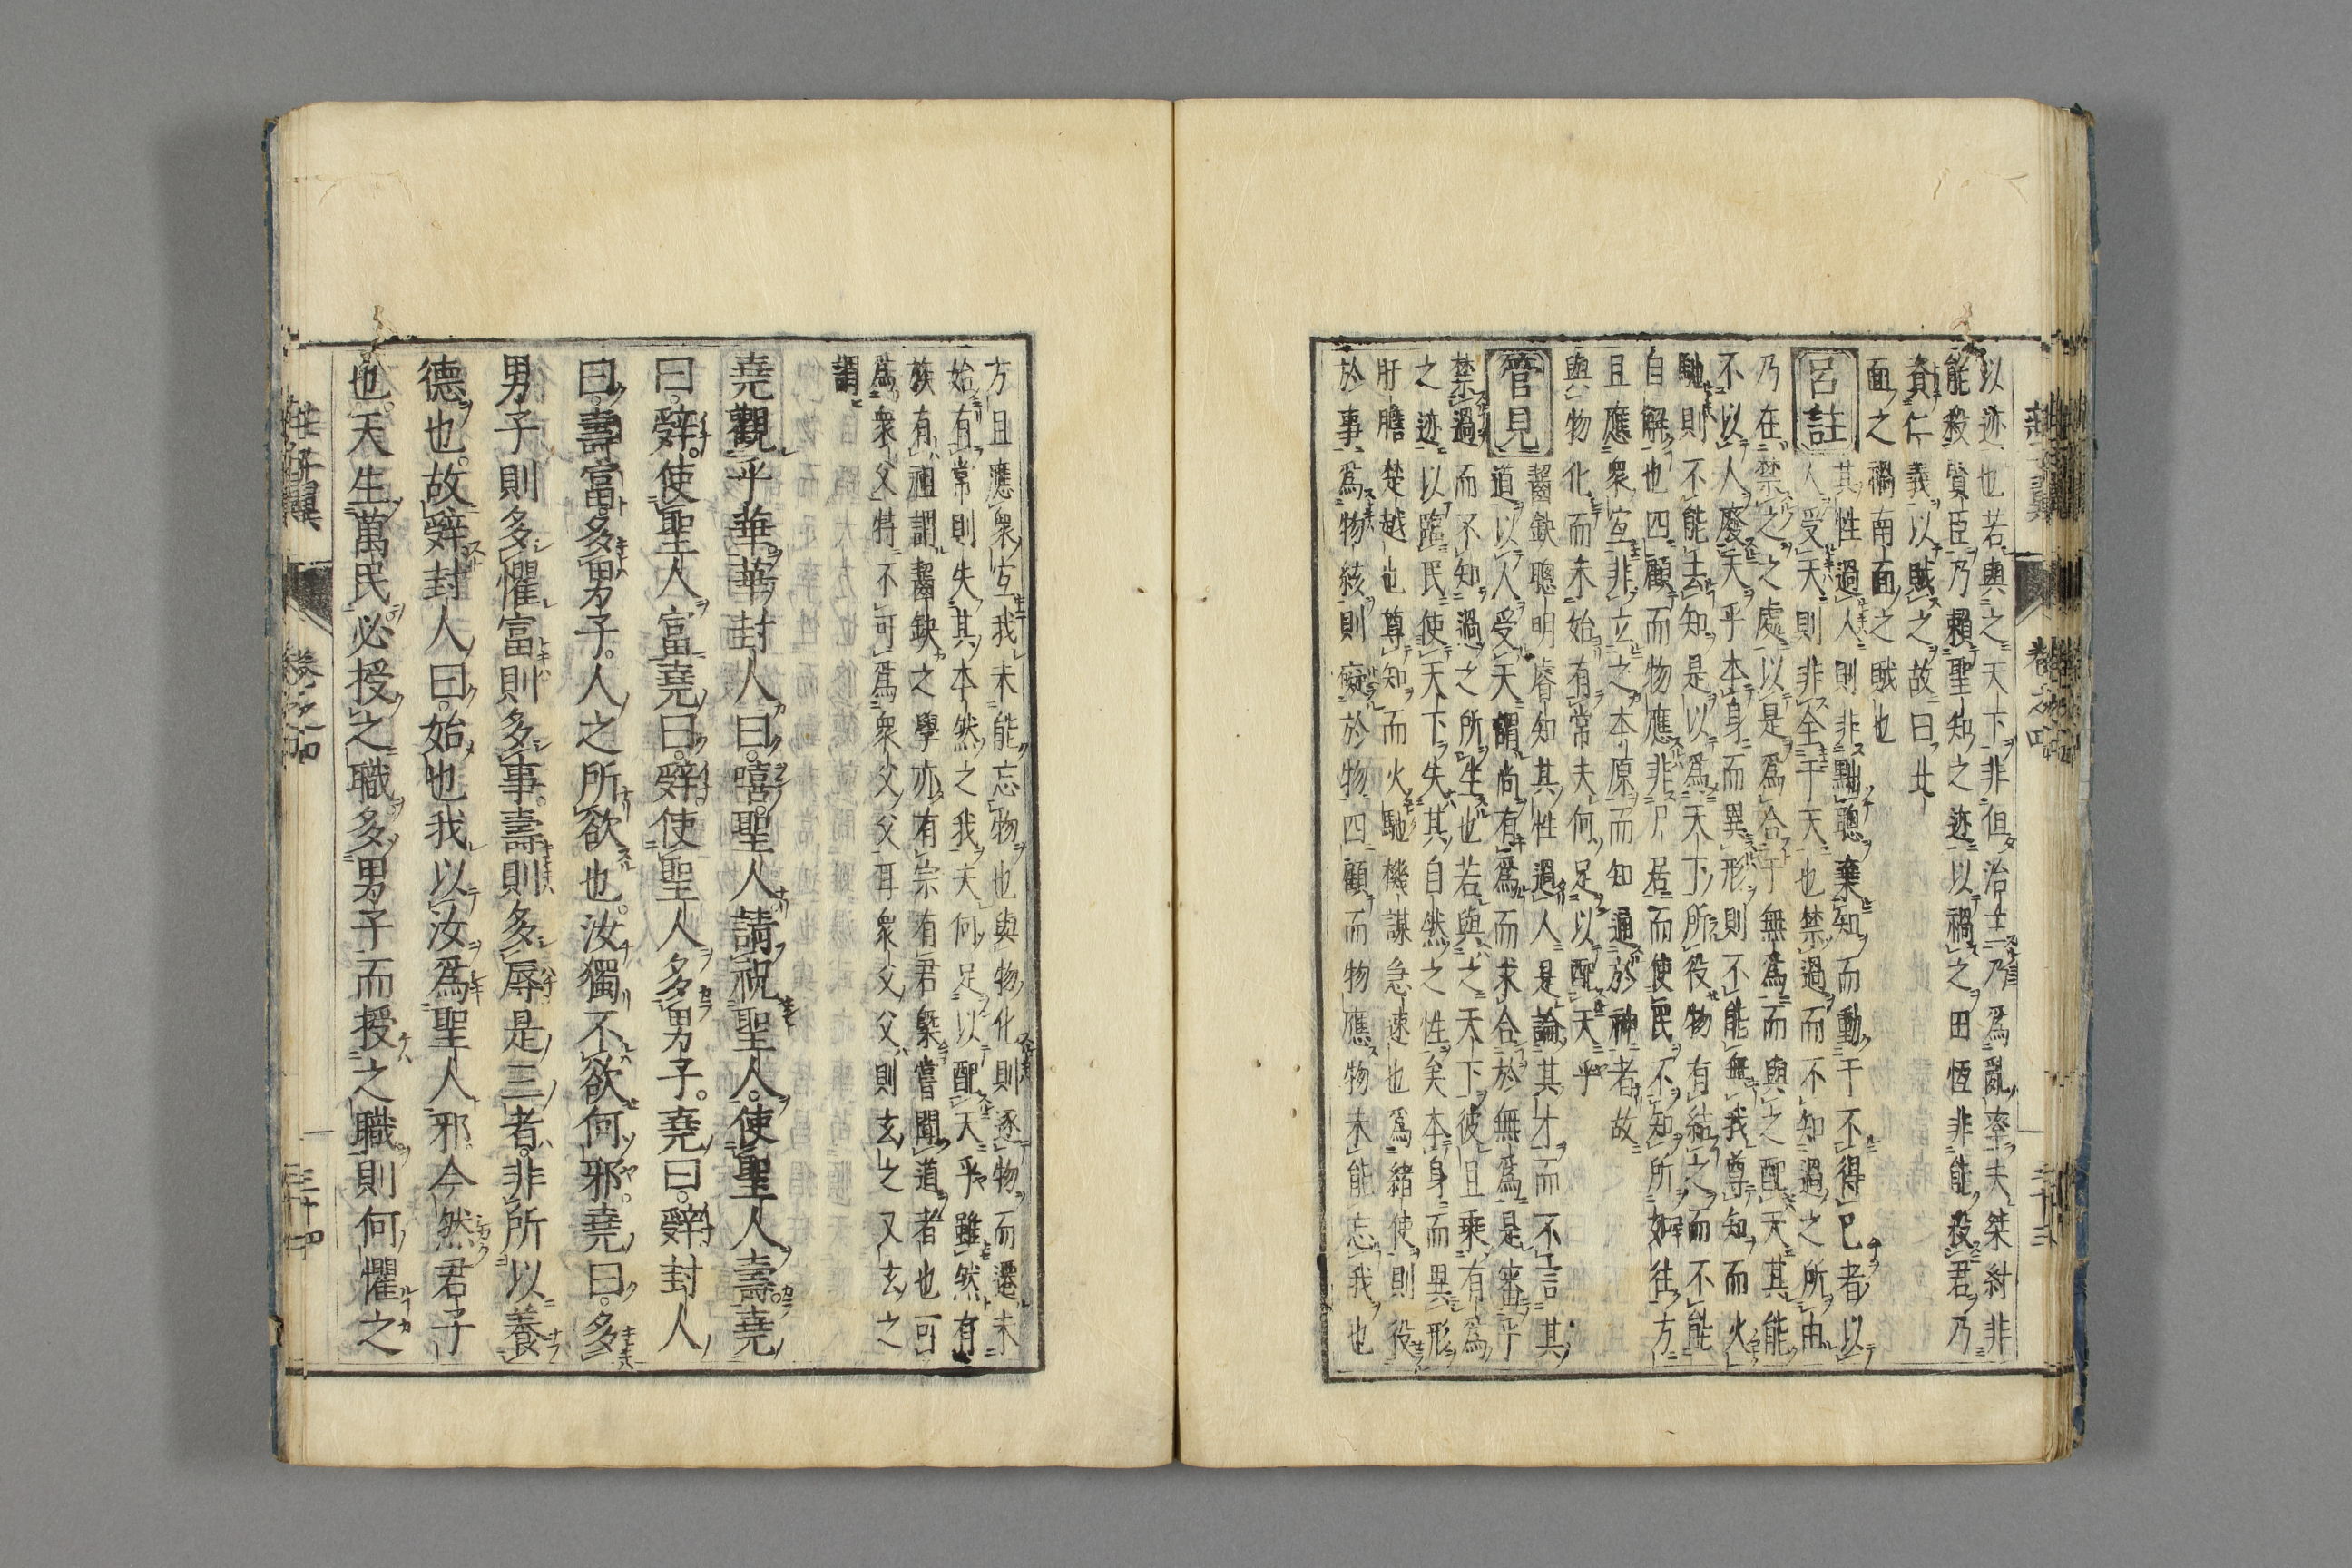 以迹也若與之天下非但治主乃爲亂率夫桀紂非
能殺賢臣乃賴聖知之迹以禍之田恆非能殺君乃
資仁義以賊之故曰北
面之禍南面之賊也
呂註
其性過人則非黜聰棄知而動于不得已者以
人受天則非全于天也禁過而不知過之所由
乃在禁之之處以是爲合于無爲而與之配天其能
不以人廢天乎本身而異形則不能無我尊知而火
馳則不能去知是以爲天下所役物有結之而不能
自解也四顧而物應非尸居而使民不知所如往方
且應衆宜非立之本原而知通於神者故
與物化而未始有常夫何足以配天乎
管見
齧缺聰明睿知其性過人是論其才而不言其
道以人受天謂尚有爲而求合於無爲是審乎
禁過而不知過之所生也若與之天下彼且乘有爲
之迹以臨民使天下失其自然之性矣本身而異形
肝膽楚越也尊知而火馳機謀急速也爲緒使則役
於事爲物絯則礙於物四顧而物應物未能忘我也
方且應衆宜我未能忘物也與物化則逐物而遷未
始有常則失其本然之我夫何足以配天乎雖然有
族有祖謂齧缺之學亦有宗有君槩嘗聞道者也可
爲衆父特不可爲衆父父耳衆父父則玄之又玄之
謂
堯觀乎華華封人曰嘻聖人請祝聖人使聖人壽堯
曰辭使聖人富堯曰辭使聖人多男子堯曰辭封人
曰壽富多男子人之所欲也汝獨不欲何邪堯曰多
男子則多懼富則多事壽則多辱是三者非所以養
德也故辭封人曰始也我以汝爲聖人邪今然君子
也天生萬民必授之職多男子而授之職則何懼之
莊子翼 卷之四 三十四